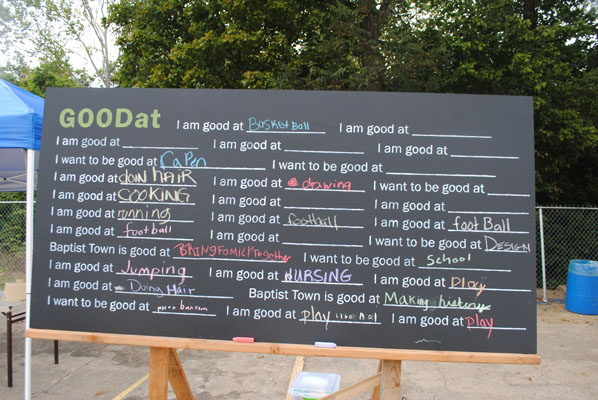 GOODat I am good at BasketBall I am good at
I am good at I am good at I am good at
I want to be good at I want to be good at
I am good at doin HAIR I am good at drawing I want to be good at
I am good at COOKING I am good at I am good at
I am good at running I am good at football I am good at footBall
I am good at football I am good at I want to be good at DESIGN
Baptist Town is good at I want to be good at School
I am good at Jumping I am good at NURSING I am good at play
I am good at Doing Hair Baptist Town is good at Making history
I want to be good at I am good at play I am good at play